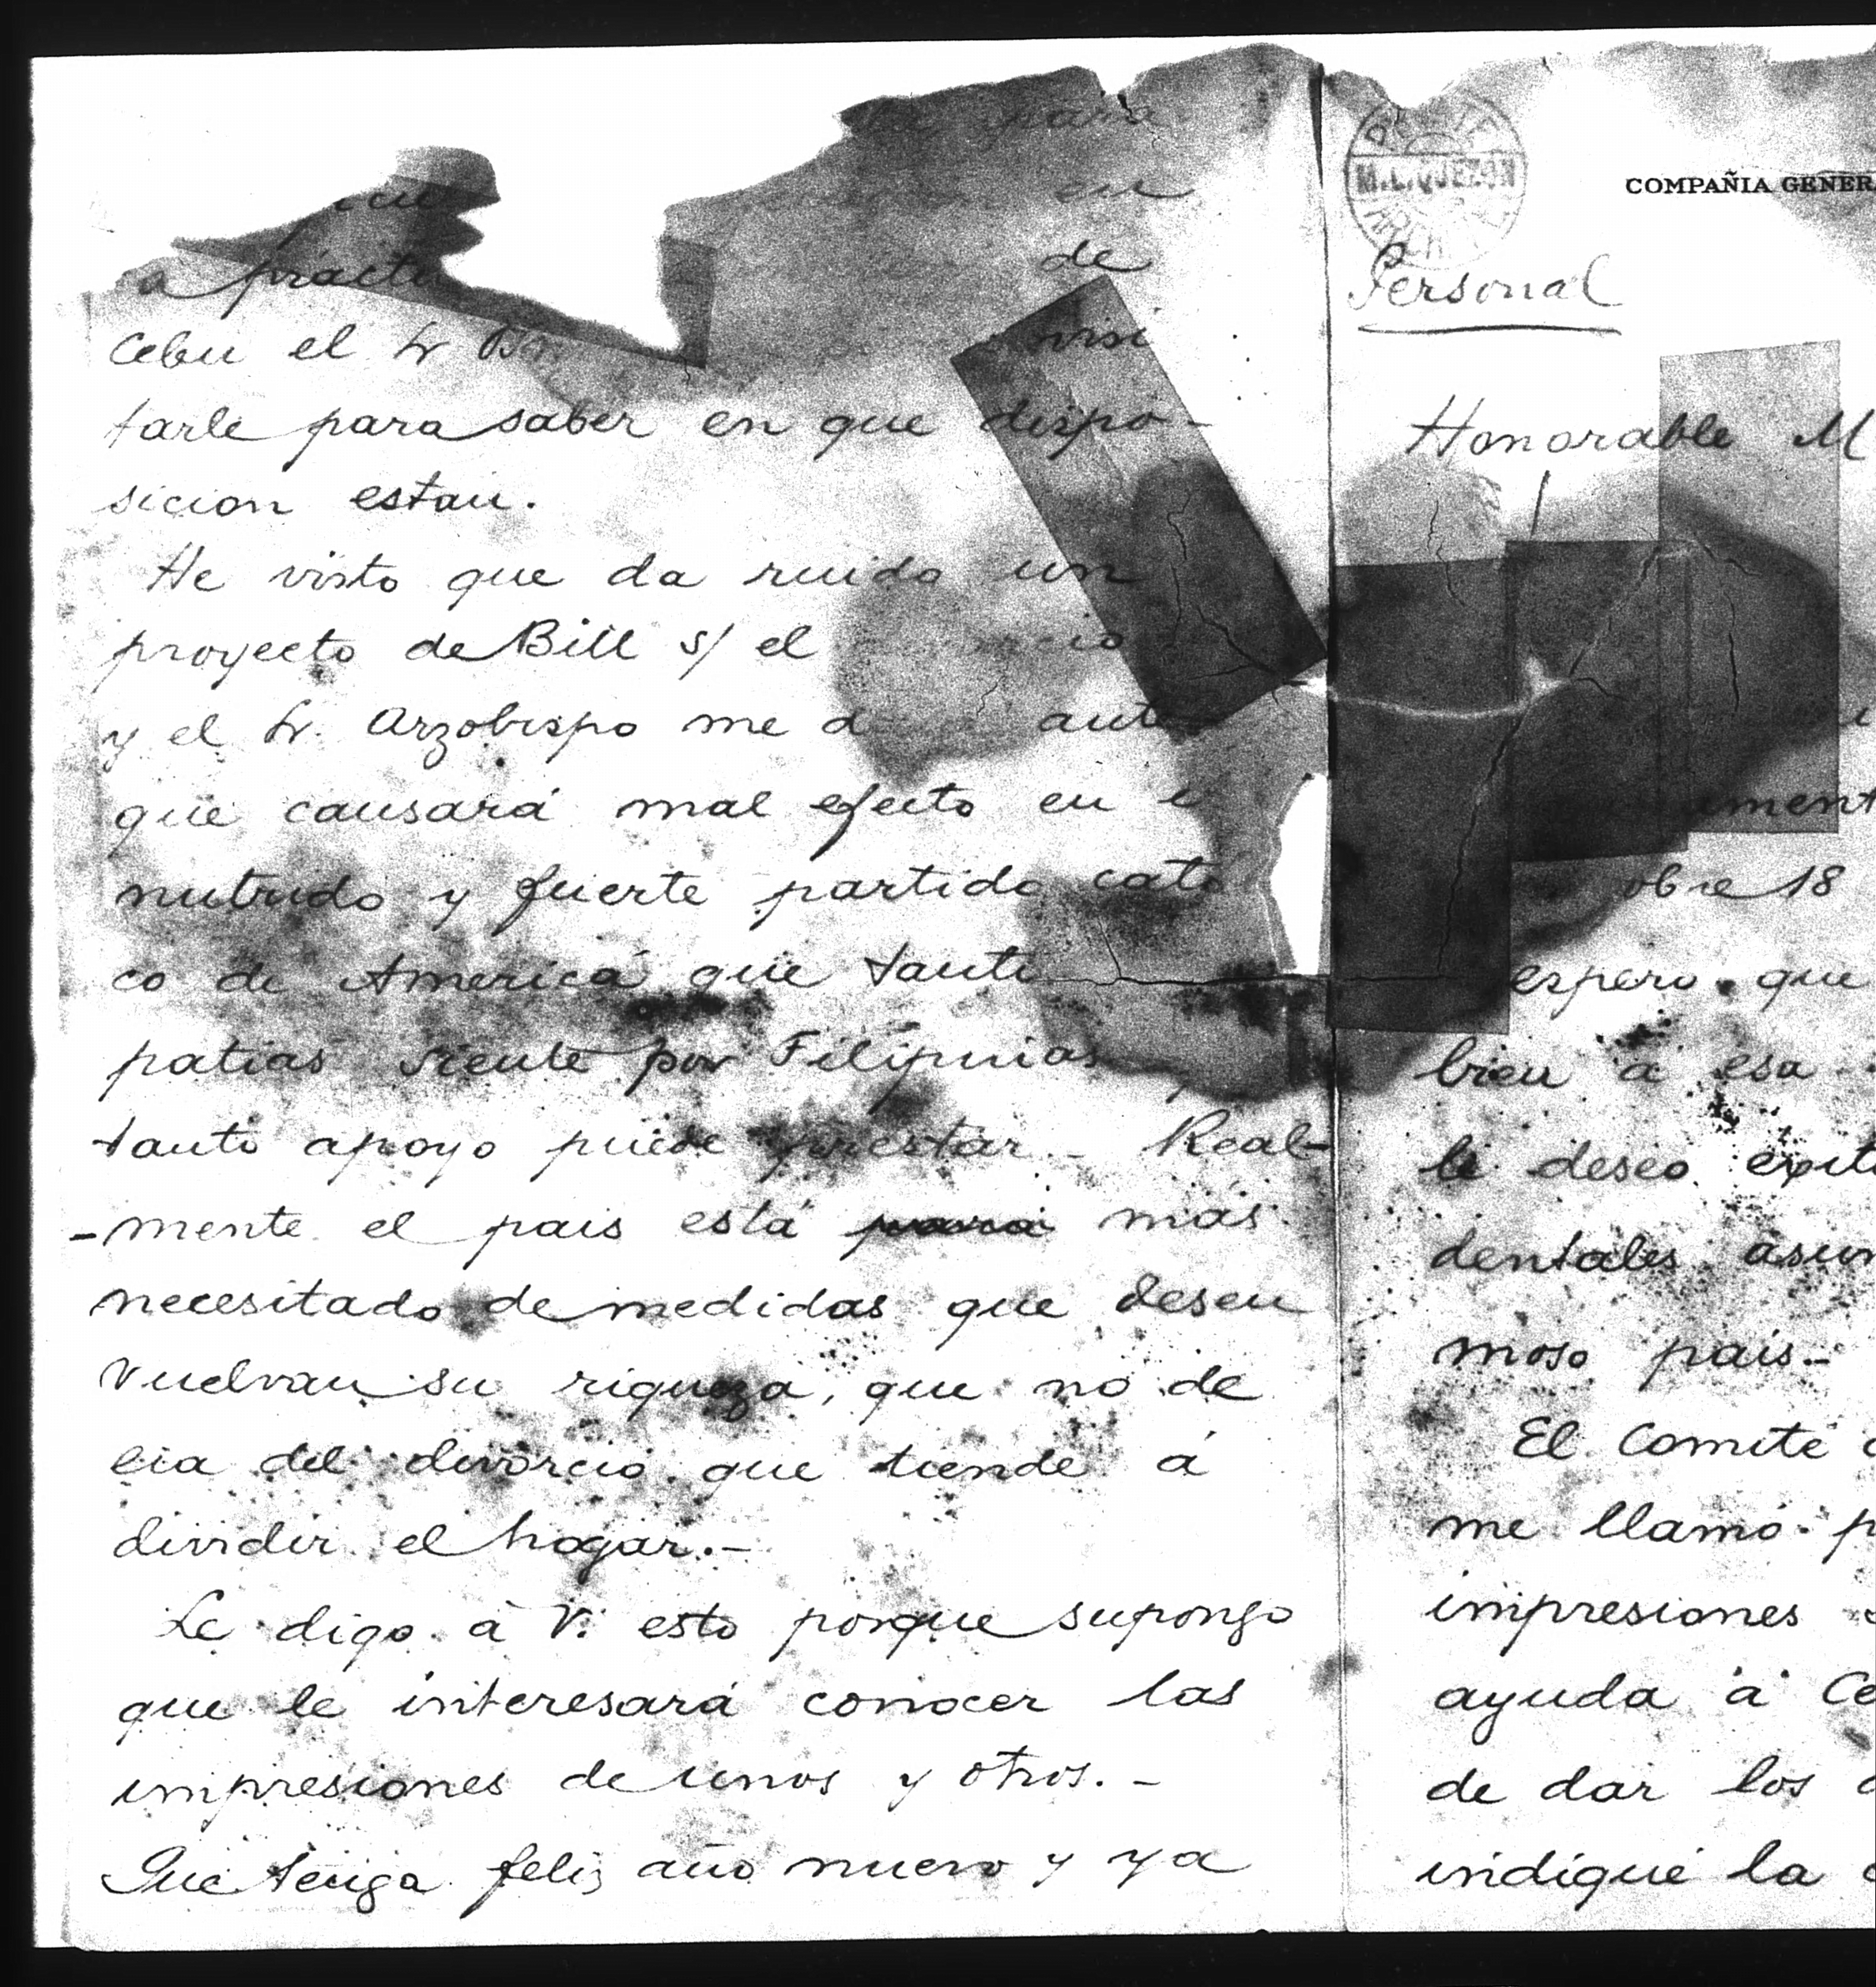 para
en
a práctic
de
Cebu el Sr
visi
tarle para saber en que dispo-
sicion estan.
He visto que da ruido un
proyecto de Bill s/ el
y el Sr. Arzobispo me d
que causará mal efecto en
nutrido y fuerte partido cató
co de America que tanti
patias siente por Filipinas
tanto apoyo puede prestar - Real-
-mente el pais está más
necesitado de medidas que desen
vuelvan su riqueza, que no de
eia del divorcio que tiende á
dividir el hogar.-
Le digo á V. esto porque supongo
que le interesará conocer las
impresiones de unos y otros.-
Que tenga feliz año nuevo y ya
M.L. QUEZON
COMPAÑIA GENER
Personal
Honorable M
ament
obre 18
espero que
bien á esa
le deseo exit
dentales asun
moso pais.-
El Comite
me llamó p
impresiones
ayuda á Ce
de dar los
indiqué la